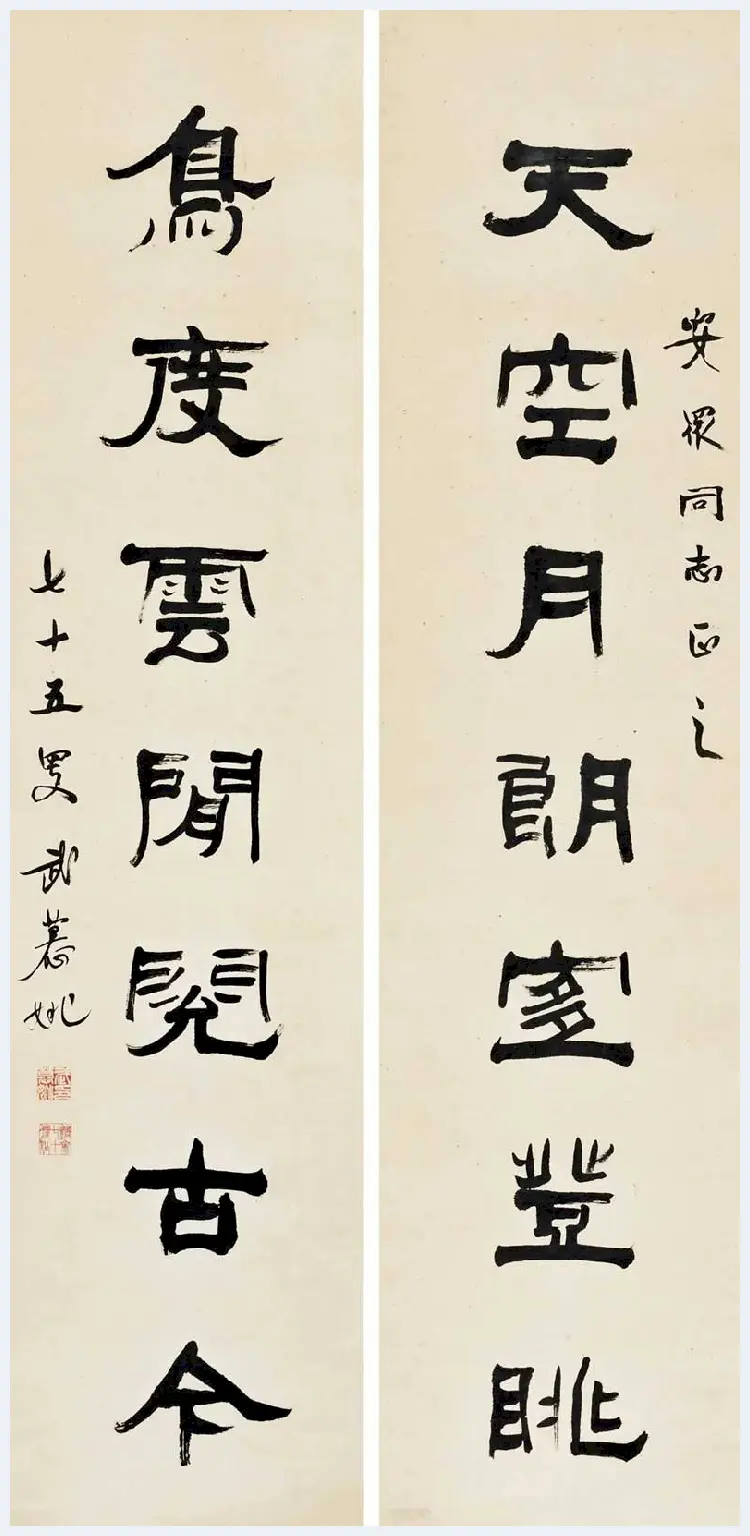 安眾同志正之
天空月朗宜登眺
鳥度雲閒閱古今
七十五叟武慕姚